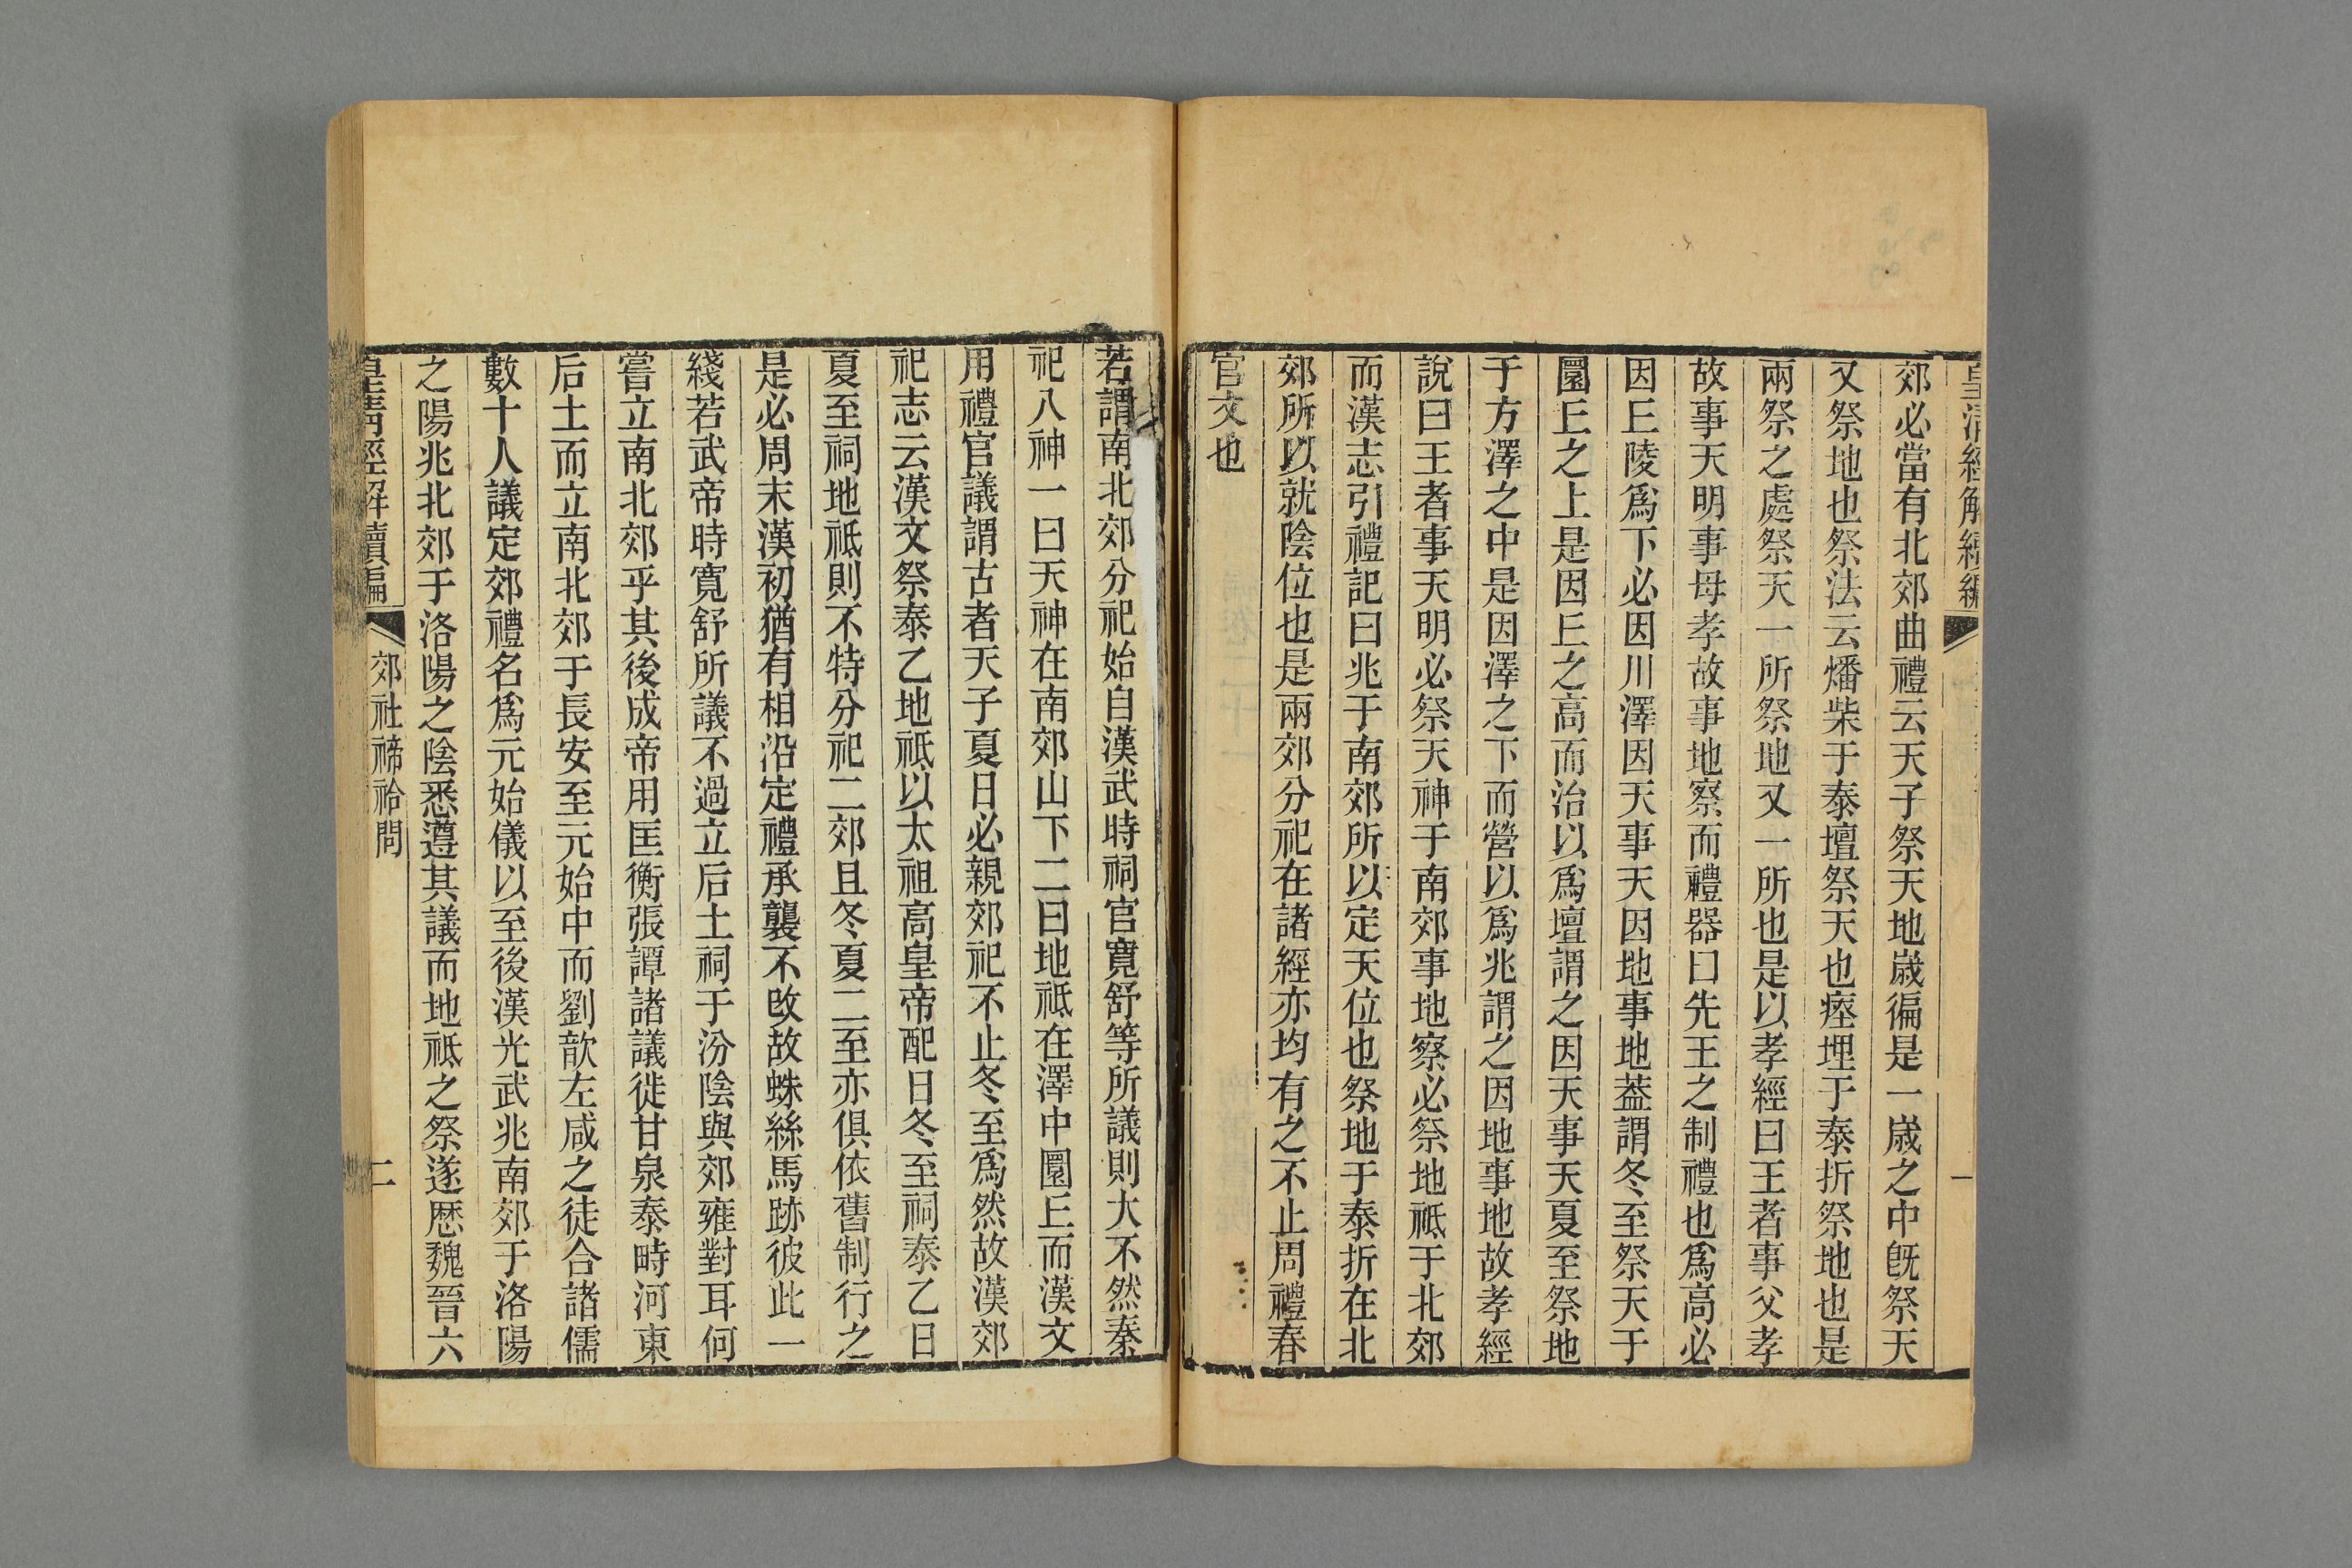 皇清經解續編
一
郊必當有北郊曲禮云天子祭天地歲徧是一歲之中既祭天
又祭地也祭法云燔柴于泰壇祭天也瘞埋于泰折祭地也是
兩祭之處祭天一所祭地又一所也是以孝經曰王者事父孝
故事天明事母孝故事地察而禮器曰先王之制禮也爲高必
因𠀉陵爲下必因川澤因天事天因地事地葢謂冬至祭天于
圜𠀉之上是因𠀉之高而治以爲壇謂之因天事天夏至祭地
于方澤之中是因澤之下而營以爲兆謂之因地事地故孝經
說曰王者事天明必祭天神于南郊事地察必祭地祗于北郊
而漢志引禮記曰兆于南郊所以定天位也祭地于泰折在北
郊所以就陰位也是兩郊分祀在諸經亦均有之不止周禮春
官文也
若謂南北郊分祀始自漢武時祠官寬舒等所議則大不然秦
祀八神一曰天神在南郊山下二曰地祗在澤中圜𠀉而漢文
用禮官議謂古者天子夏日必親郊祀不止冬至爲然故漢郊
祀志云漢文祭泰乙地祗以太祖高皇帝配日冬至祠泰乙日
夏至祠地祗則不特分祀二郊且冬夏二至亦俱依舊制行之
是必周末漢初猶有相沿定禮承襲不改故蛛絲馬跡彼此一
綫若武帝時寬舒所議不過立后土祠于汾陰與郊雍對耳何
嘗立南北郊乎其後成帝用匡衡張譚諸議徙甘泉泰畤河東
后土而立南北郊于長安至元始中而劉歆左咸之徒合諸儒
數十人議定郊禮名爲元始儀以至後漢光武兆南郊于洛陽
之陽兆北郊于洛陽之陰悉遵其議而地祗之祭遂歷魏晉六
皇清經解續編
郊社禘祫問
二